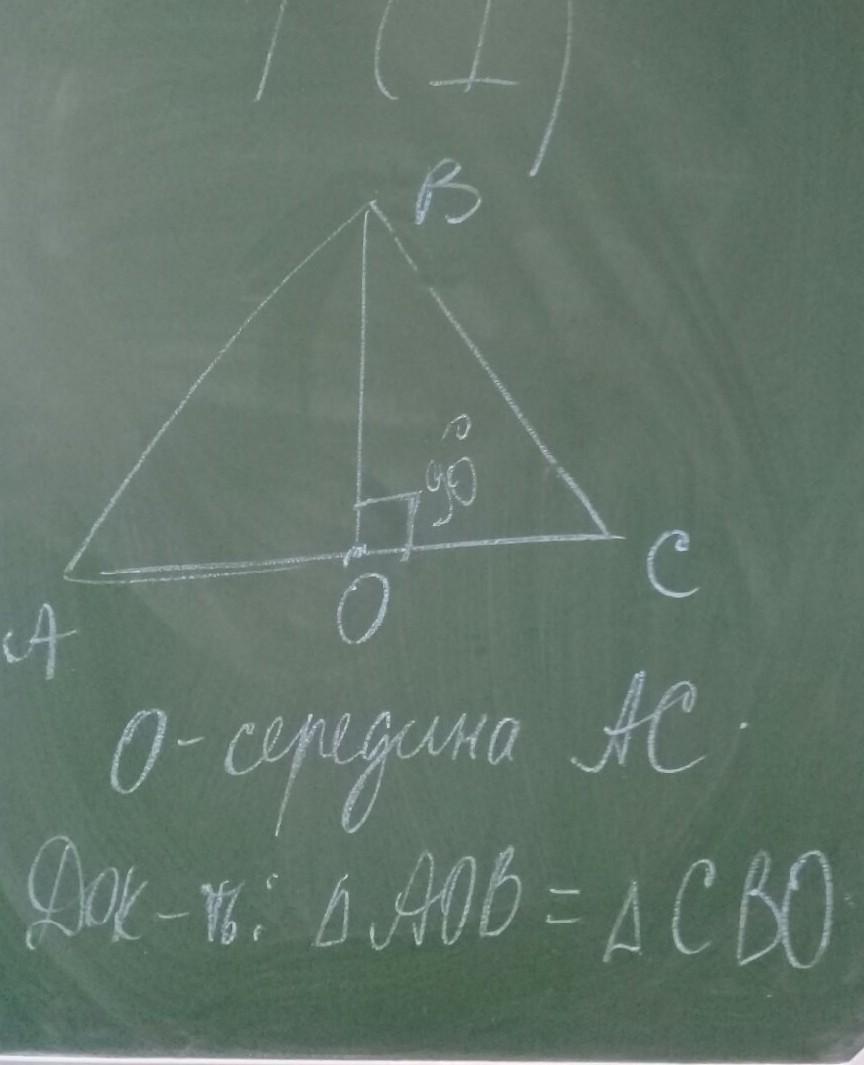 (1)
B
90°
A
O
C
O - середина AC.
Док-ть: Δ AOB = Δ CBO